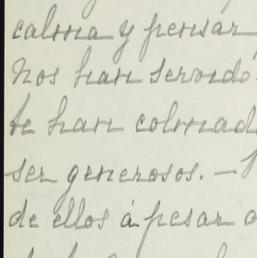 calma y pensar
nos han servido
te han colmad
ser generosos. —
de ellos á pesar